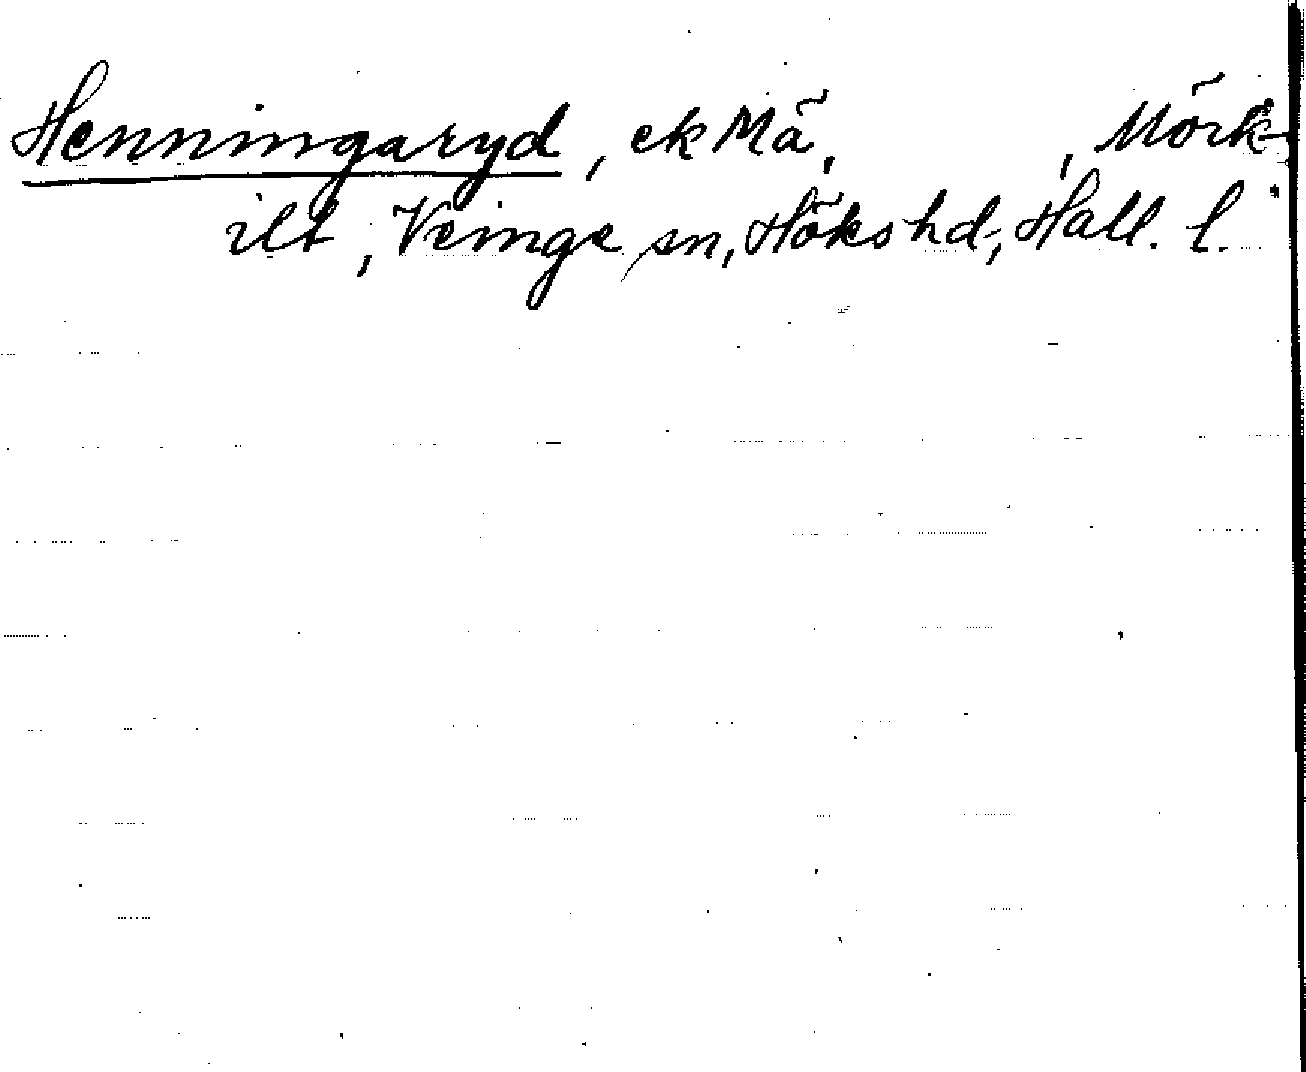 Henningaryd, ek Mä, , Mörk-
ilt, Veinge sn, Höks hd, Hall. l.